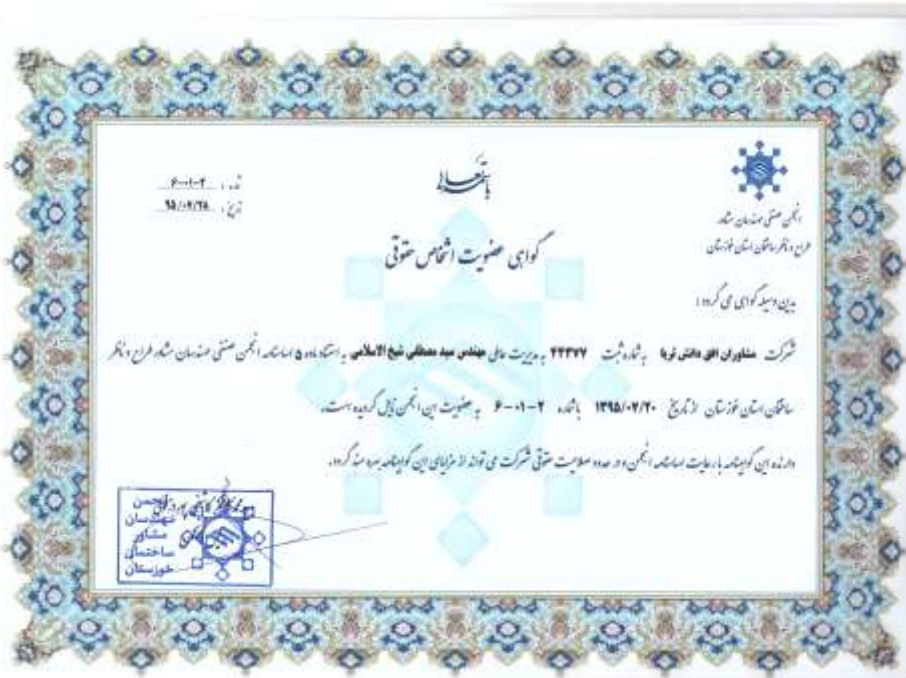 باسمه تعالی
شماره : ۶-۰۱-۲
تاریخ : ۹۵/۰۲/۲۸
انجمن صنفی مهندسان مشاور
طراح و ناظر ساختمان استان خوزستان
گواهی عضویت اشخاص حقوقی
بدین وسیله گواهی می گردد :
شرکت مشاوران افق دانش ثریا به شماره ثبت ۴۴۳۷۷ به مدیریت عاملی مهندس سید مصطفی شیخ الاسلامی به استناد ماده ۵ اساسنامه انجمن صنفی مهندسان مشاور طراح و ناظر
ساختمان استان خوزستان از تاریخ ۱۳۹۵/۰۲/۲۰ با شماره ۶-۰۱-۲ به عضویت این انجمن نایل گردیده است.
دارنده این گواهینامه با رعایت اساسنامه انجمن و در حدود صلاحیت حقوقی شرکت می تواند از مزایای این گواهینامه بهره مند گردد.
انجمن
مهندسان
مشاور
ساختمان
خوزستان